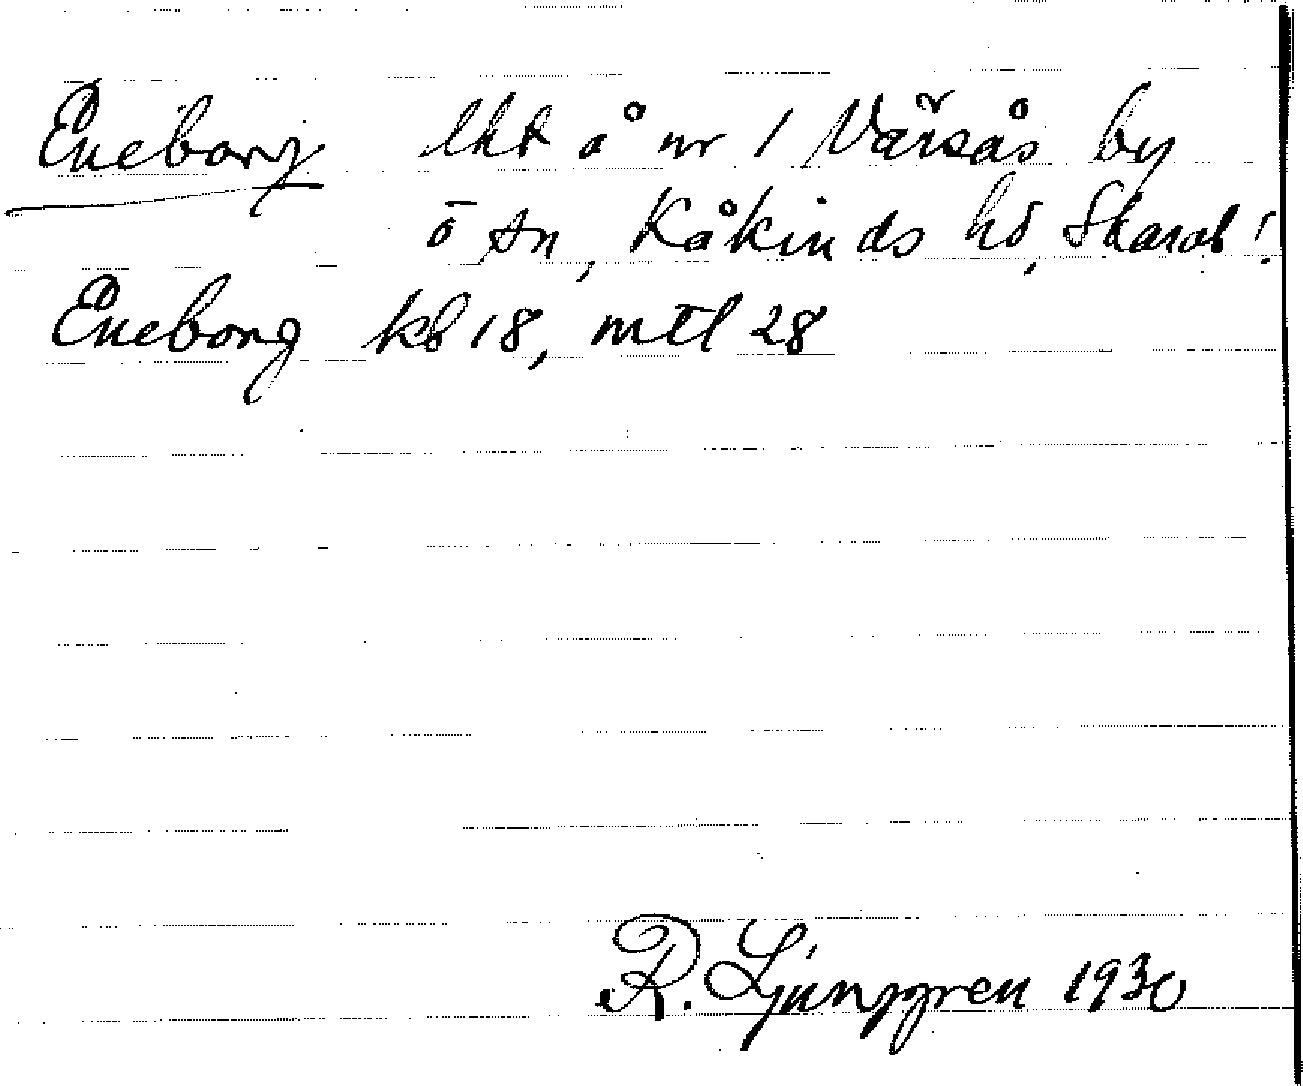 Eneborg lht å nr 1 Värsås by
o sn, Kåkinds hd, Skarab!
Eneborg kb 18, mtl 28
R. Ljunggren 1930